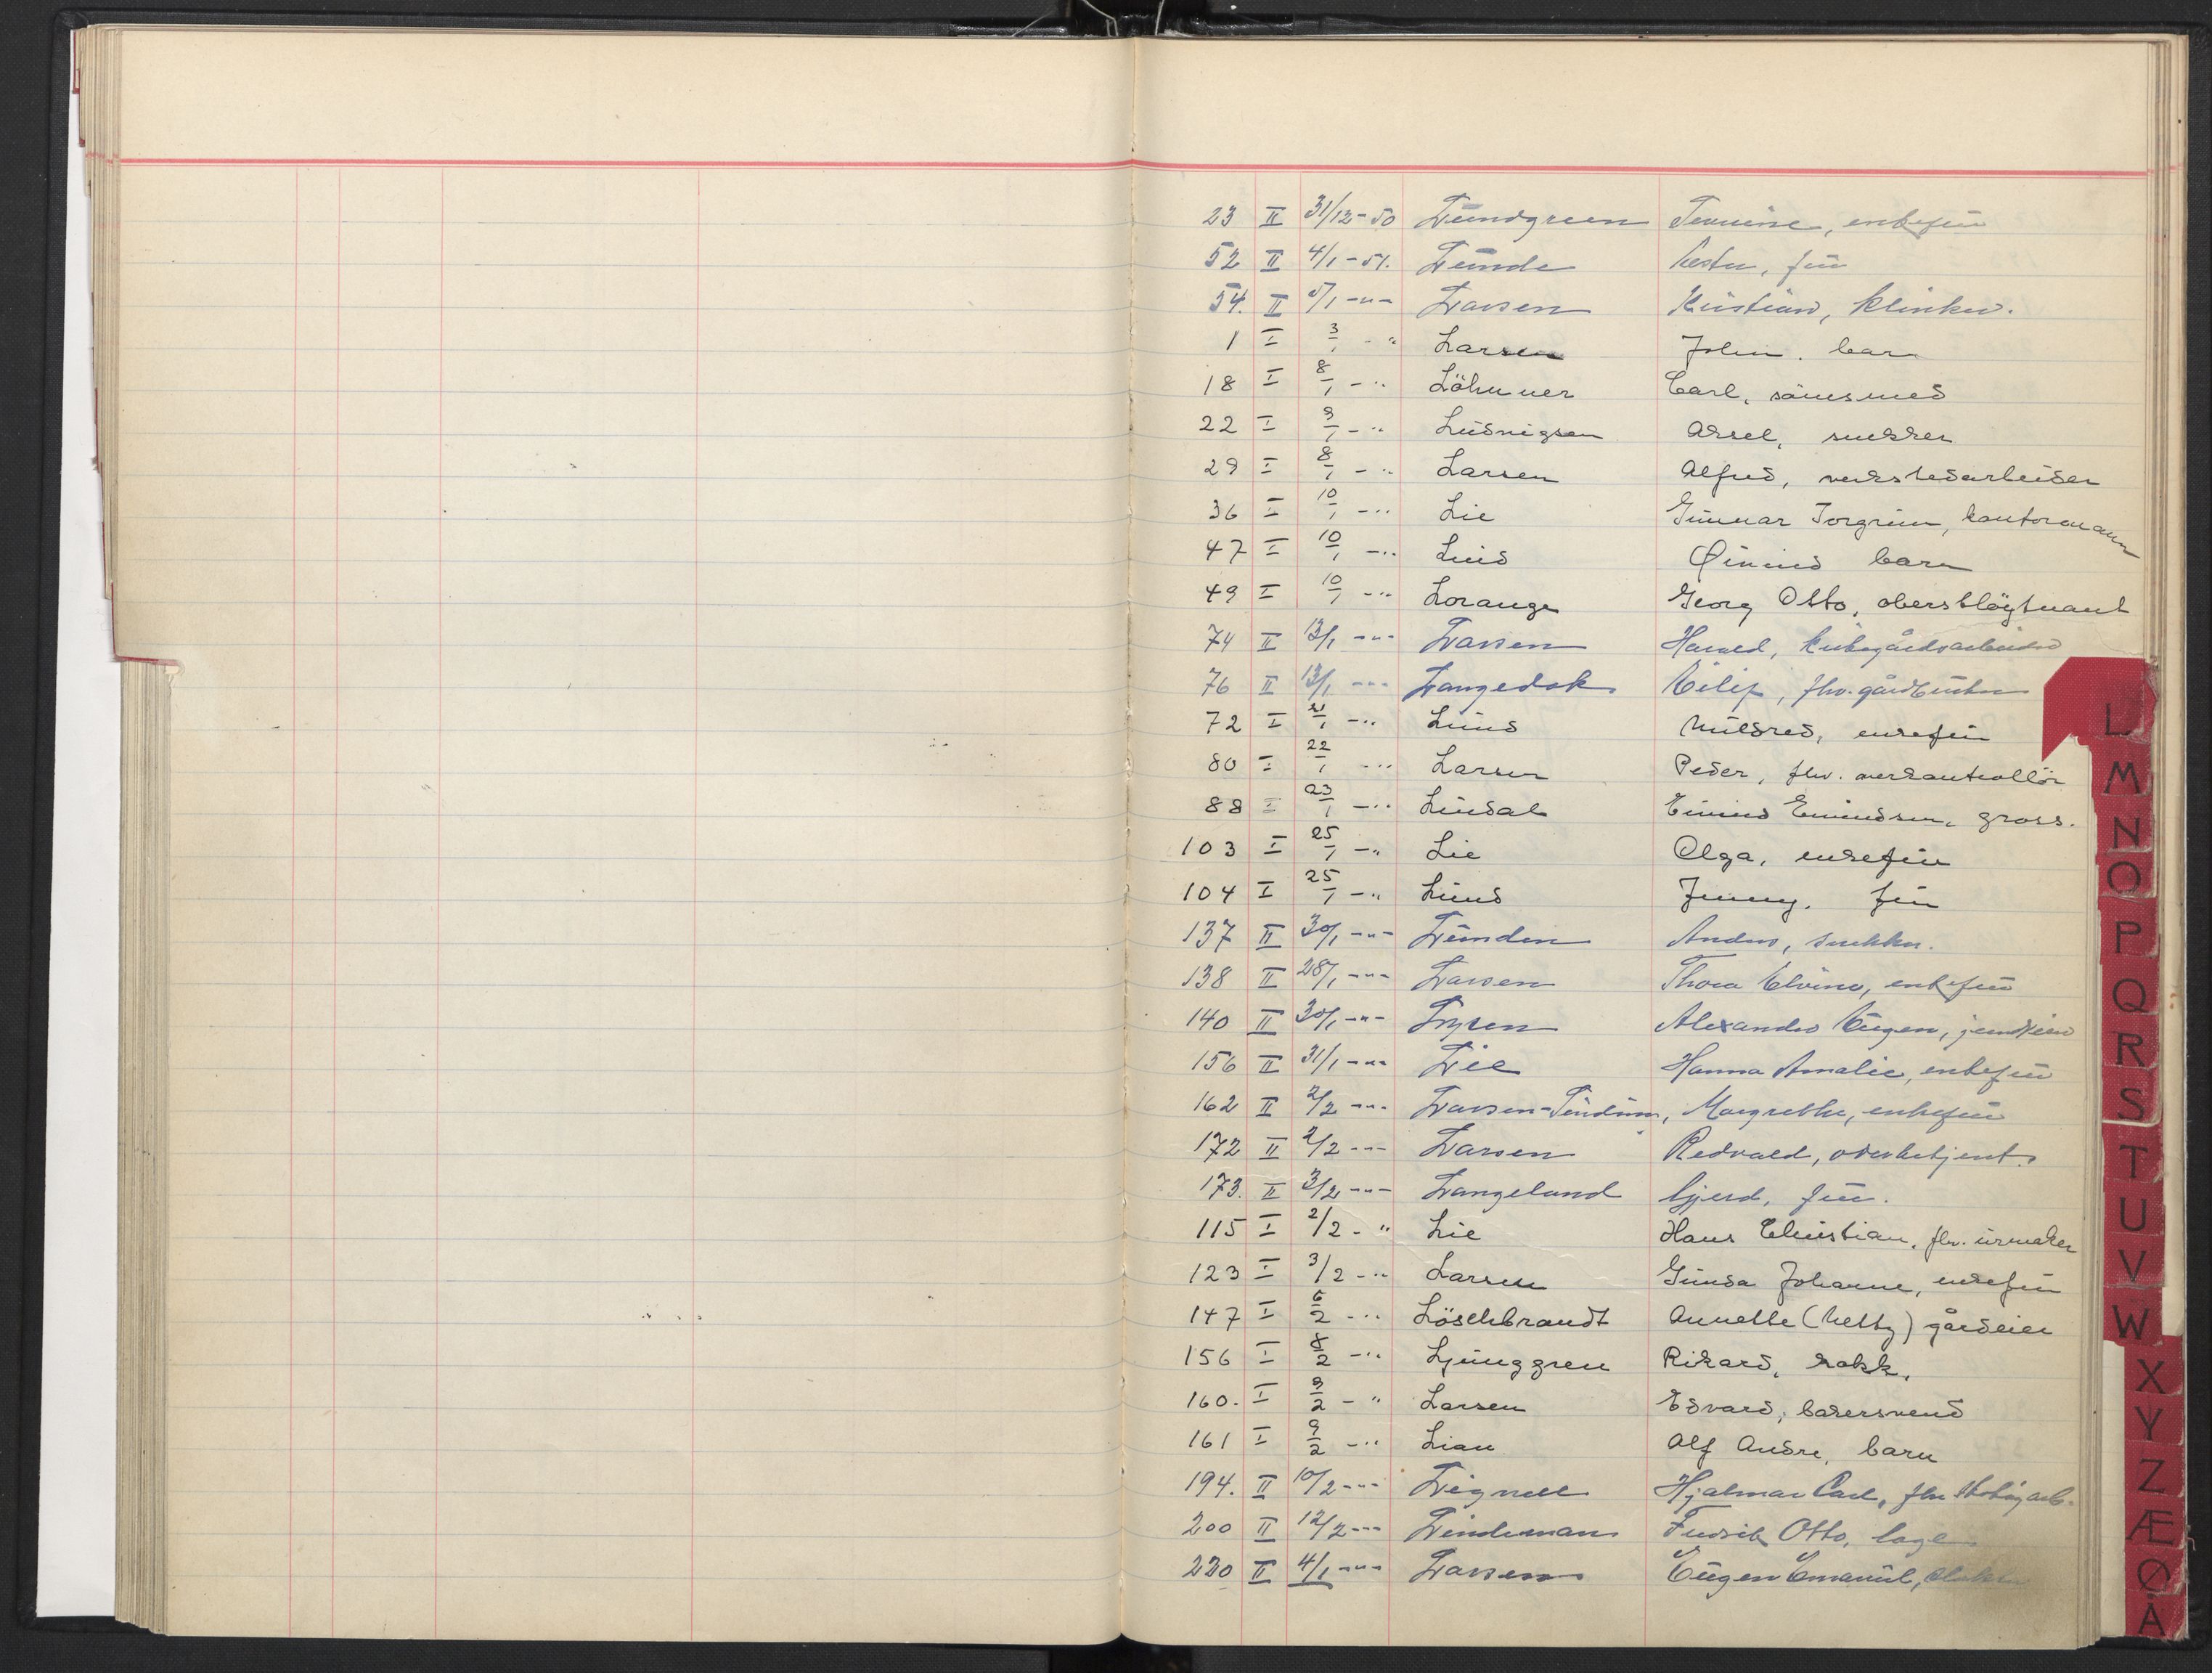 23 II 31/12-50 Lundgreen Jensine, enkefru
52 II 4/1-51. Lunde Ester, fru
54. II 5/1 -"- Larsen Kristian, klinker.
1 I 3/1 - " Larsen John. barn
18 I 8/1 - " Löhnner Carl,
22 I 9/1 - " Ludvigsen Aksel, snekker
29 I 8/1 - " Larsen Alfred, verkstedarbeider
36 I 10/1 - " Lie Gunnar Torgrim, kontormann
47 I 10/1 - " Lund Øivind barn
49 I 10/1 - " Lorange Georg Otto, oberstløytnant
74 II 13/1 -"- Larsen Harald, kirkegårdsarbeider
76 II 13/1 -"- Langedok Eilif, fhv. gårdbruker
72 I 21/1 - " Lund Mildred, enkefru
80 I 22/1 - " Larsen Peder, fhv. overkontrollør
88 I 23/1 - " Lindal Eivind Eivindsen, gross.
103 I 25/1 - " Lie Olga, enkefru
104 I 25/1 - " Lund Jenny. fru
137 II 30/1 -"- Lunden Anders, snekker.
138 II 28/1 -"- Larsen Thora Elvine, enkefru
140 II 30/1 -"- Alexander Eugen,
156 II 31/1 -"- Lie Hanna Amalie, enkefru
162 II 2/2 -"- Larsen- Margrethe, enkefru
172 II 2/2 -"- Larsen Redvald, overbetjent.
173. II 3/2 -"- Langeland Gjerd, fru.
115 I 2/2 - " Lie Hans Christian, fhv. urmaker
123 I 3/2 - " Larsen Gunda Johanne, enkefru
147 I 6/2 - " Löschbrandt Annette (Netty) gårdeier
156 I 8/2 - " Ljunggren Rikard, kokk.
160. I 9/2 - " Larsen Edvard, bakersvend
161 I 9/2 - " Lian Alf Andre, barn
194. II 10/2 -"- Lignell Hjalmar Carl, fhv.
200 II 12/2 -"- Lindeman Fredrik Otto, lage
220 II 4/1 -"- Larsen Eugen Emanuel,
L
M
N
O
P
Q
R
S
T
U
V
W
X
Y
Z
Æ
Ø
Å